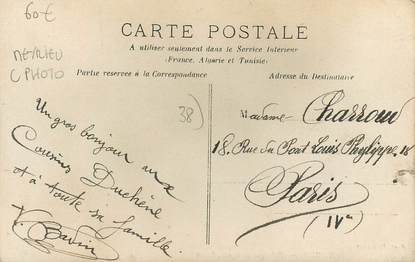 60€
MEYRIEU
C PHOTO
38)
CARTE POSTALE
A utiliser seulement dans le Service Intérieur
(France, Algérie et Tunisie)
Partie réservée à la Correspondance
Adresse du Destinataire
Un gros bonjour aux
Cousins Duchêne
et à toute sa famille.
Madame Charrou
18, Rue du Pont Louis Phylippe, 18
Paris
(IVe)